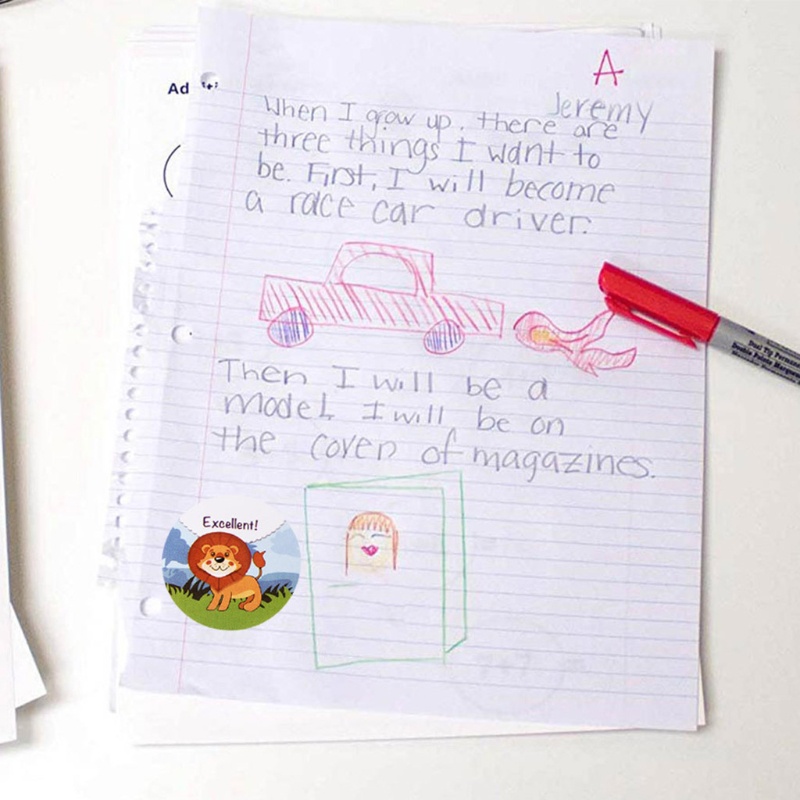 A
Jeremy
Ad
When I grow up, there are
three things I want to
be. First, I will become
a race car driver.
Then I will be a
model. I will be on
the cover of magazines.
Excellent!
Dual Tip Permanent
Double Pointe Marqueur